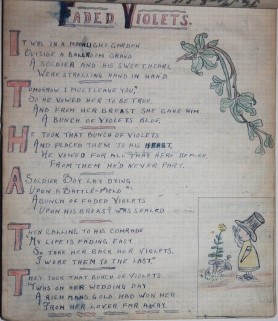 FADED VIOLETS.
IT WAS IN A MOONLIGHT GARDEN
OUTSIDE A BALLROOM GRAND
A SOLDIER AND HIS SWEETHEART,
WERE STROLLING HAND IN HAND
TOMORROW I MUST LEAVE YOU,"
SO HE VOWED HER TO BE TRUE,
AND FROM HER BREAST SHE GAVE HIM
A BUNCH OF VIOLETS BLUE.
HE TOOK THAT BUNCH OF VIOLETS
AND PLACED THEM TO HIS HEART,
HE VOWED FOR ALL THAT
FROM THEM HE'D NEVER PART.
A SOLDIER BOY LAY DYING
UPON A BATTLE-FIELD
A BUNCH OF FADED VIOLETS
UPON HIS BREAST WAS SEALED
THEN CALLING TO HIS COMRADE
"MY LIFE IS FADING FAST.
SO TAKE HER BACK HER VIOLETS,
I WORE THEM TO THE LAST."
THEY TOOK THAT BUNCH OF VIOLETS
'TWAS ON HER WEDDING DAY
A RICH MANS GOLD HAD WON HER
FROM HER LOVER FAR AWAY.